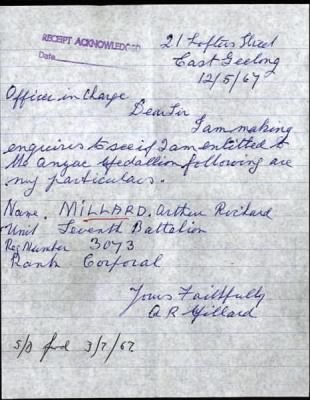 RECEIPT ACKNOWLEDGED
Date
21 Lofters Street
East Geelong
12/5/67
Officer in Charge
Dear Sir
I am making
enquires to see if I am entitled to
the Anzac Medallion following are
my particulars.
Name. MILLARD. Arthur Richard
Unit Seventh Battalion
Reg Number 3073
Rank Corporal
Yours Faithfully
A R Millard
S/D fwd 3/7/67